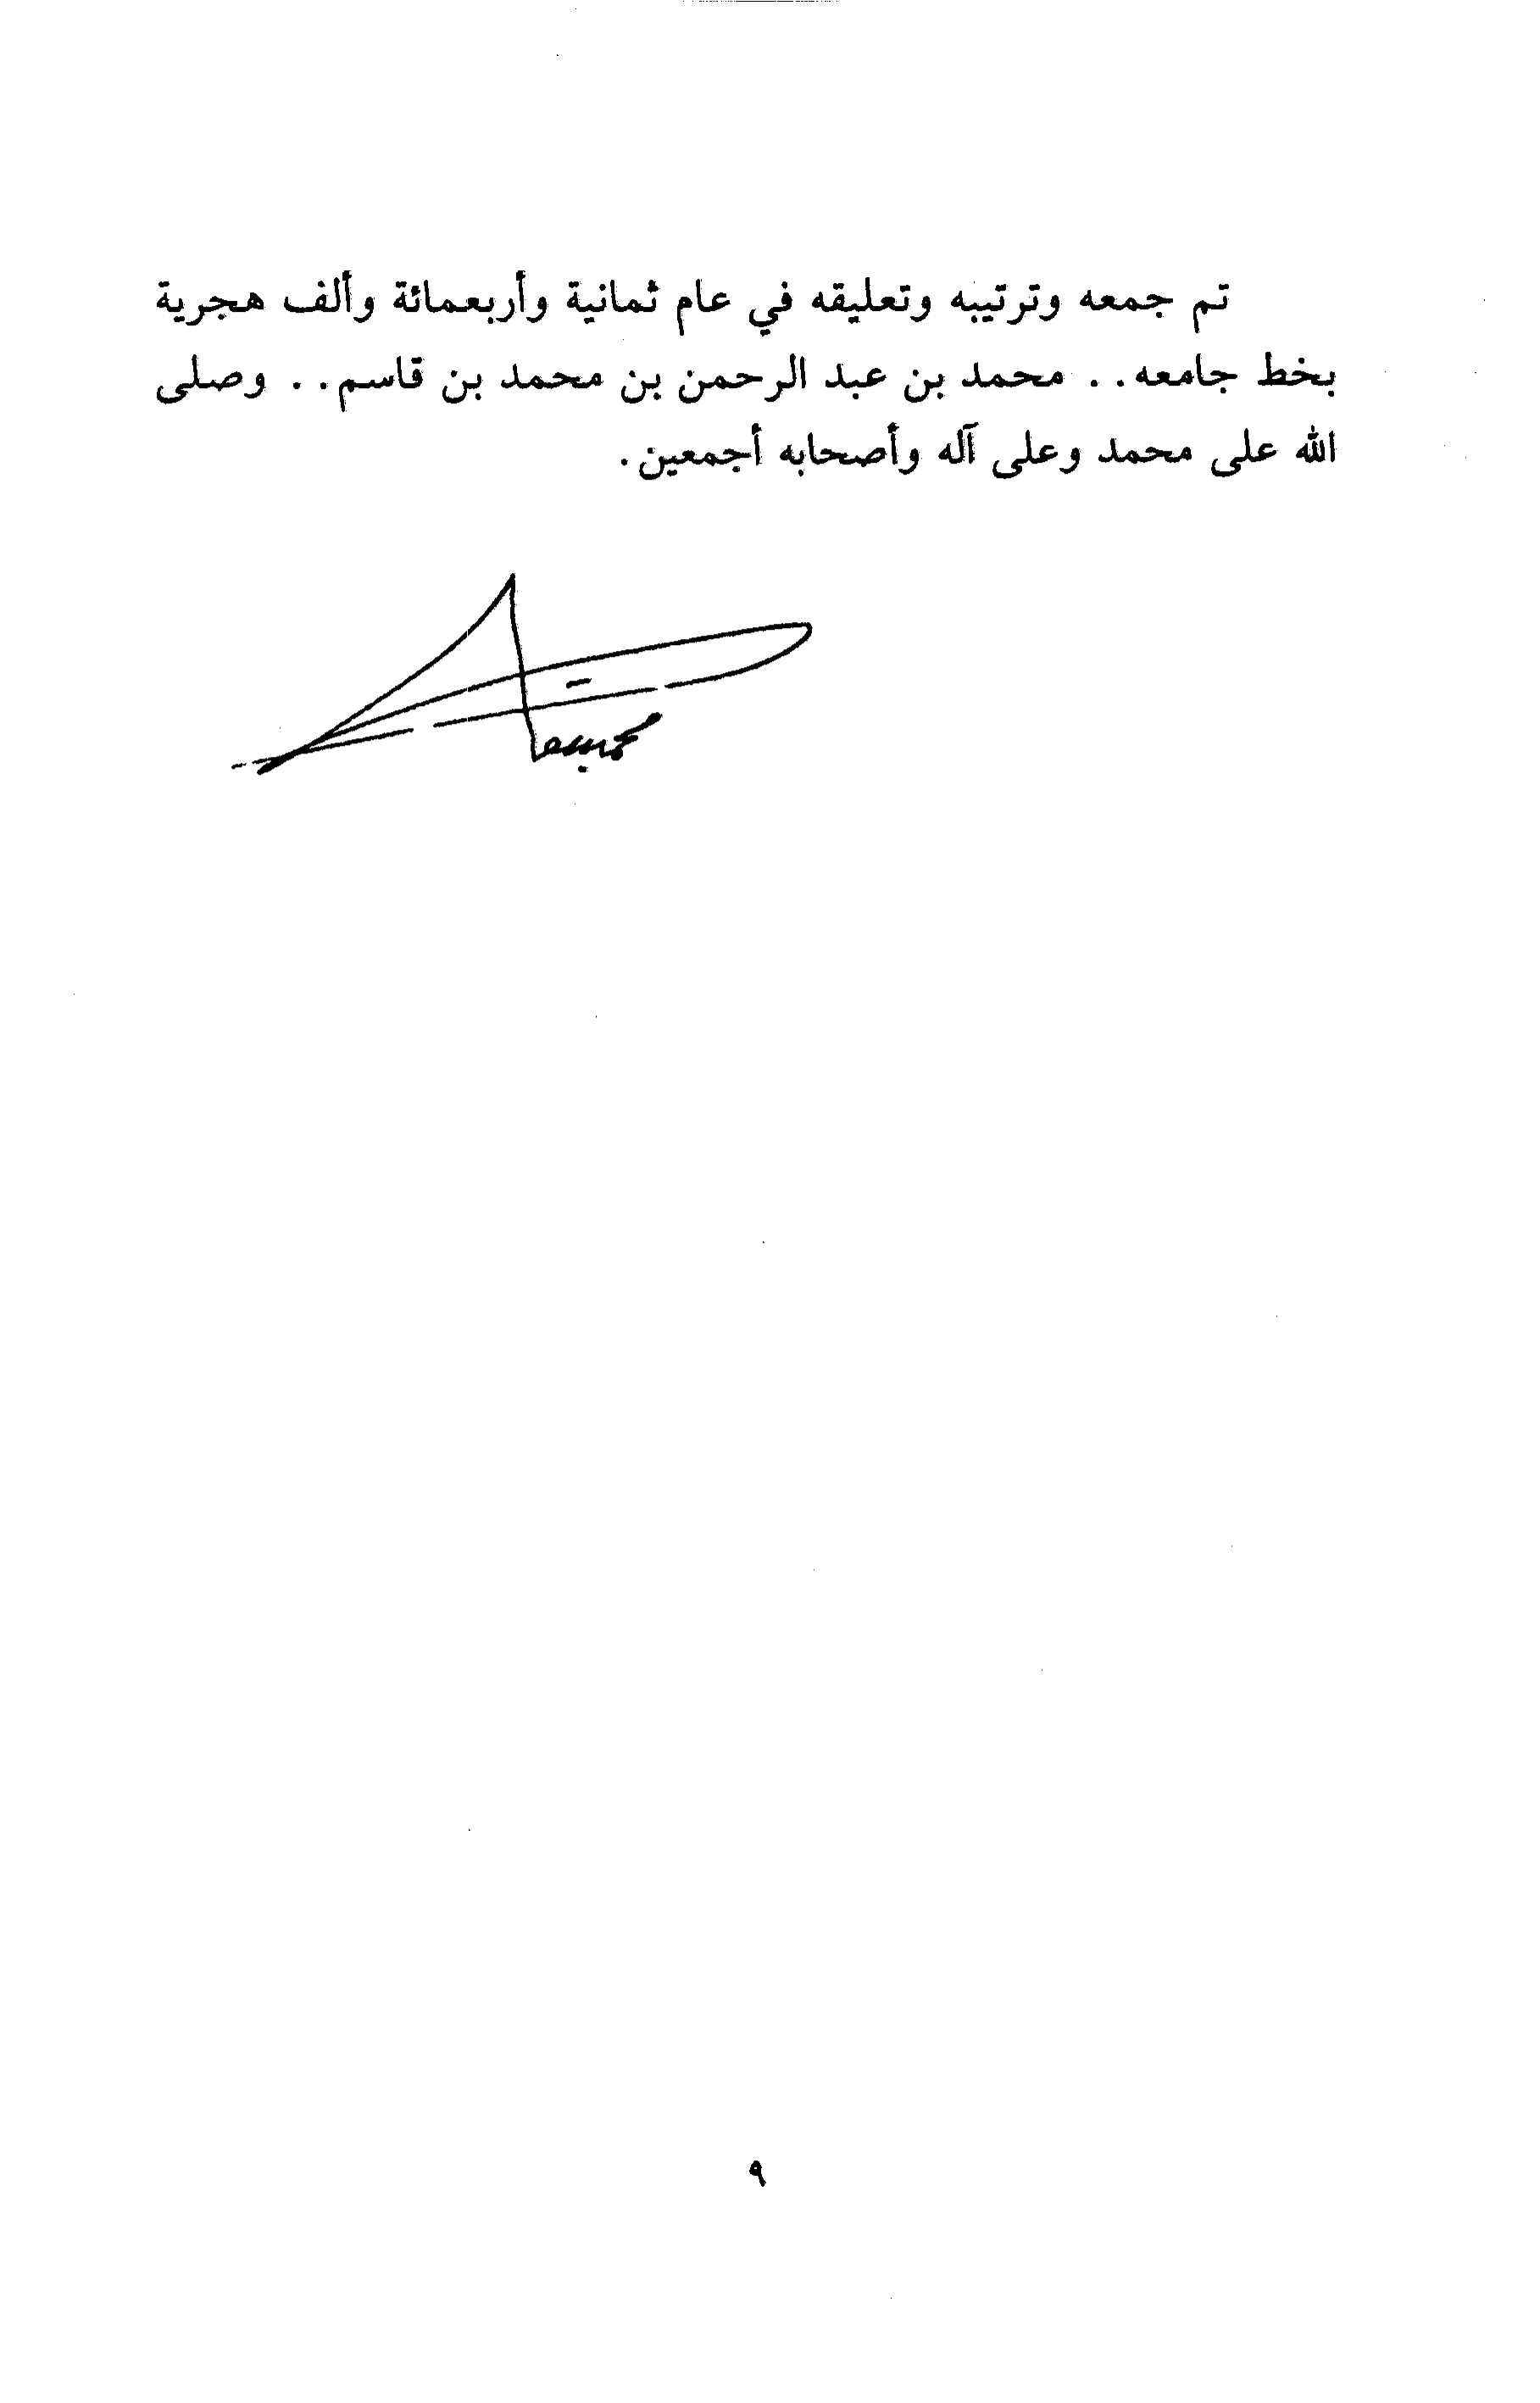 تم جمعه وترتيبه وتعليقه في عام ثمانية وأربعمائة وألف هجرية
بخط جامعه. . محمد بن عبد الرحمن بن محمد بن قاسم. . وصلى
الله على محمد وعلى آله وأصحابه أجمعين.
٩